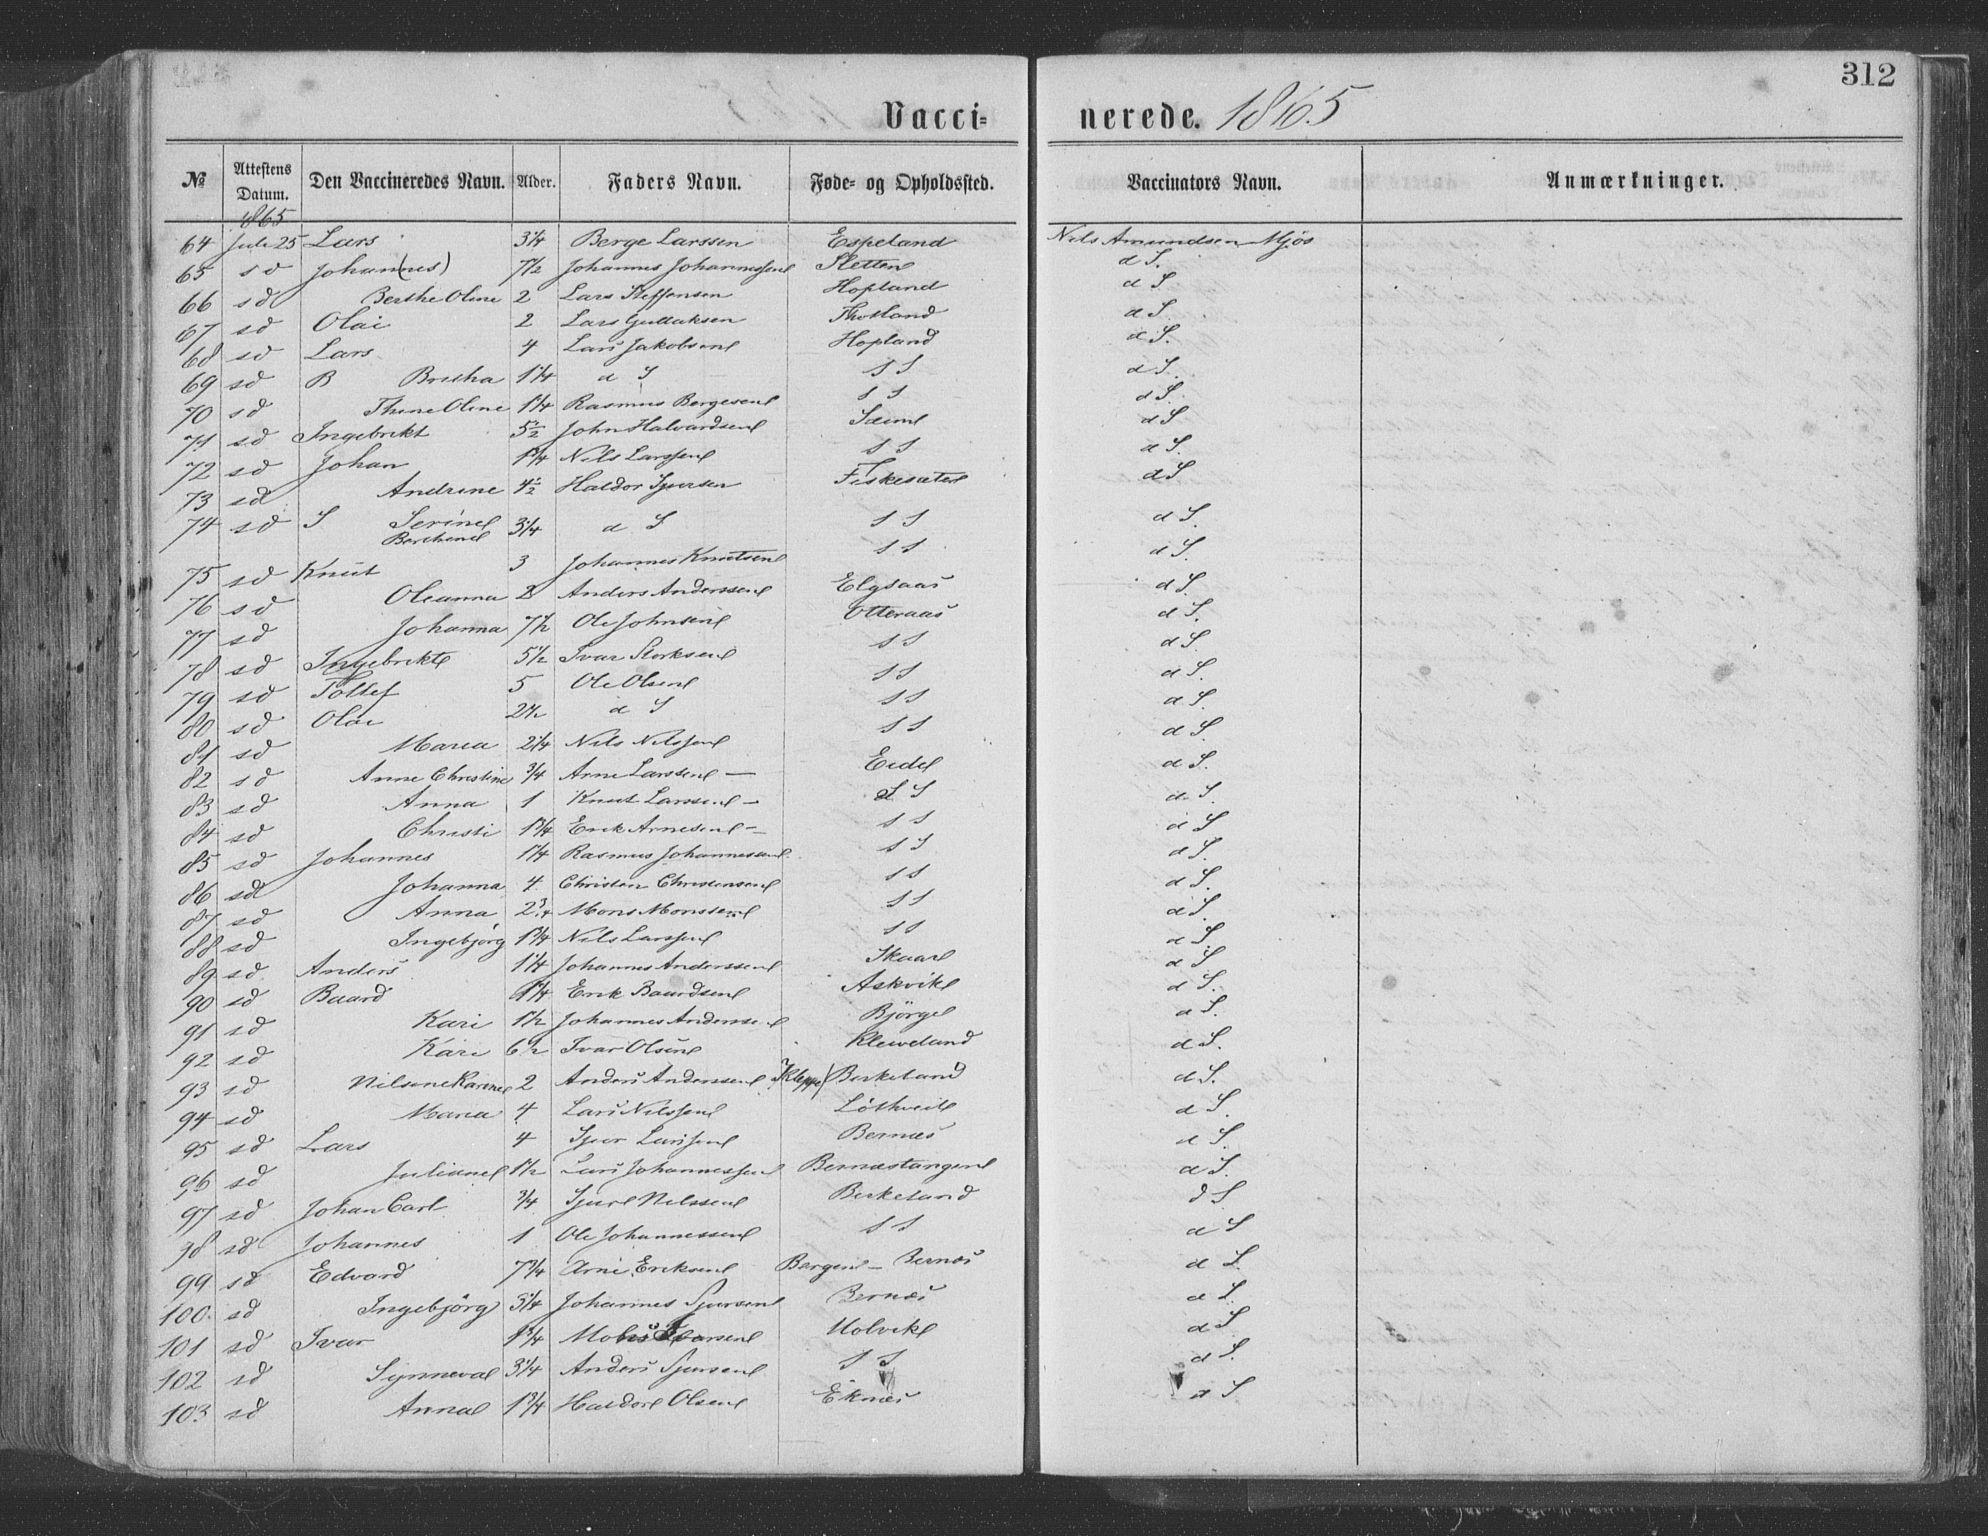 312
Vacci= nerede. 1865
№ Attestens Datum. Den Vaccineredes Navn. Alder. Faders Navn. Føde- og Opholdssted. Vaccinators Navn. Anmærkninger.
1865
64 Juli 25 Lars 3 1/4 Berge Larssen Espeland Nils Amundsen Mjös
65 sd Johan(nes) 7 1/2 Johannes Johannessen Sletten d S.
66 sd Berthe Oline 2 Lars Steffensen Hopland d S
67 sd Olai 2 Lars Gullaksen d S.
68 sd Lars 4 Lars Jakobsen Hopland d S.
69 sd B Britha 1 1/4 d S S S d S.
70 sd Thine Oline 1 1/4 Rasmus Bergesen S S d S.
71 sd Ingebrikt 5 1/2 John Halvardsen Sæim d S
72 sd Johan 1 3/4 Nils Larssen S S d S.
73 sd Andrine 4 1/2 Haldor Sjursen Fiskesæter d S
74 sd S Serine Berthine 3 1/4 d S S S d S.
75 sd Knut 3 Johannes Knutsen S S d S.
76 sd Oleanna 2 Anders Anderssen Elgsaas d S.
77 sd Johanna 7 1/2 Ole Johnsen Otteraas d S.
78 sd Ingebrikt 5 1/2 Ivar Storksen S S d S.
79 sd Tollef 5 Ole Olsen S S d S.
80 sd Olai 2 1/2 d S S S d S.
81 sd Maria 2 1/4 Nils Nilssen S S d S.
82 sd Anne Christine 3/4 Arne Larssen — Eide d S.
83 sd Anna 1 Knut Larssen — S S d S.
84 sd Christi 1 3/4 Erik Arnesen — S S d S
85 sd Johannes 1 1/4 Rasmus Johannessen S S d S.
86 sd Johanna 4 Christen Christensen S S d S.
87 sd Anna 2 3/4 Mons Monssen S S d S.
88 sd Ingebjörg 1 3/4 Nils Larssen S S d S.
89 sd Anders 1 1/4 Johannes Anderssen Skaar d S
90 sd Baard 1 1/4 Erik Baardsen Askvik d S.
91 sd Kari 1 1/2 Johannes Anderssen Björge d S.
92 sd Kari 6 1/2 Ivar Olsen Kleiveland d S.
93 sd Nilsine Karine 2 Anders Anderssen Kleppe/ Birkeland d S.
94 sd Maria 4 Lars Nilssen Löthveit d S.
95 sd Lars 4 Sjur Larssen Bernæs d S.
96 sd Juliane 1 1/2 Lars Johannessen Bernæstangen d S.
97 sd Johan Carl 3/4 Sjur Nilssen Birkeland d S
98 sd Johannes 1 Ole Johannessen S S d S
99 sd Edvard 7 3/4 Arne Eriksen Bergen — Bernæs d S.
100 sd Ingebjörg 3 1/4 Johannes Sjursen Bernæs d S.
101 sd Ivar 1 3/4 Holvik d S
102 sd Synneva 3 1/4 Anders Sjursen S S d S.
103 sd Anna 1 3/4 Haldor Olsen Eknæs d S